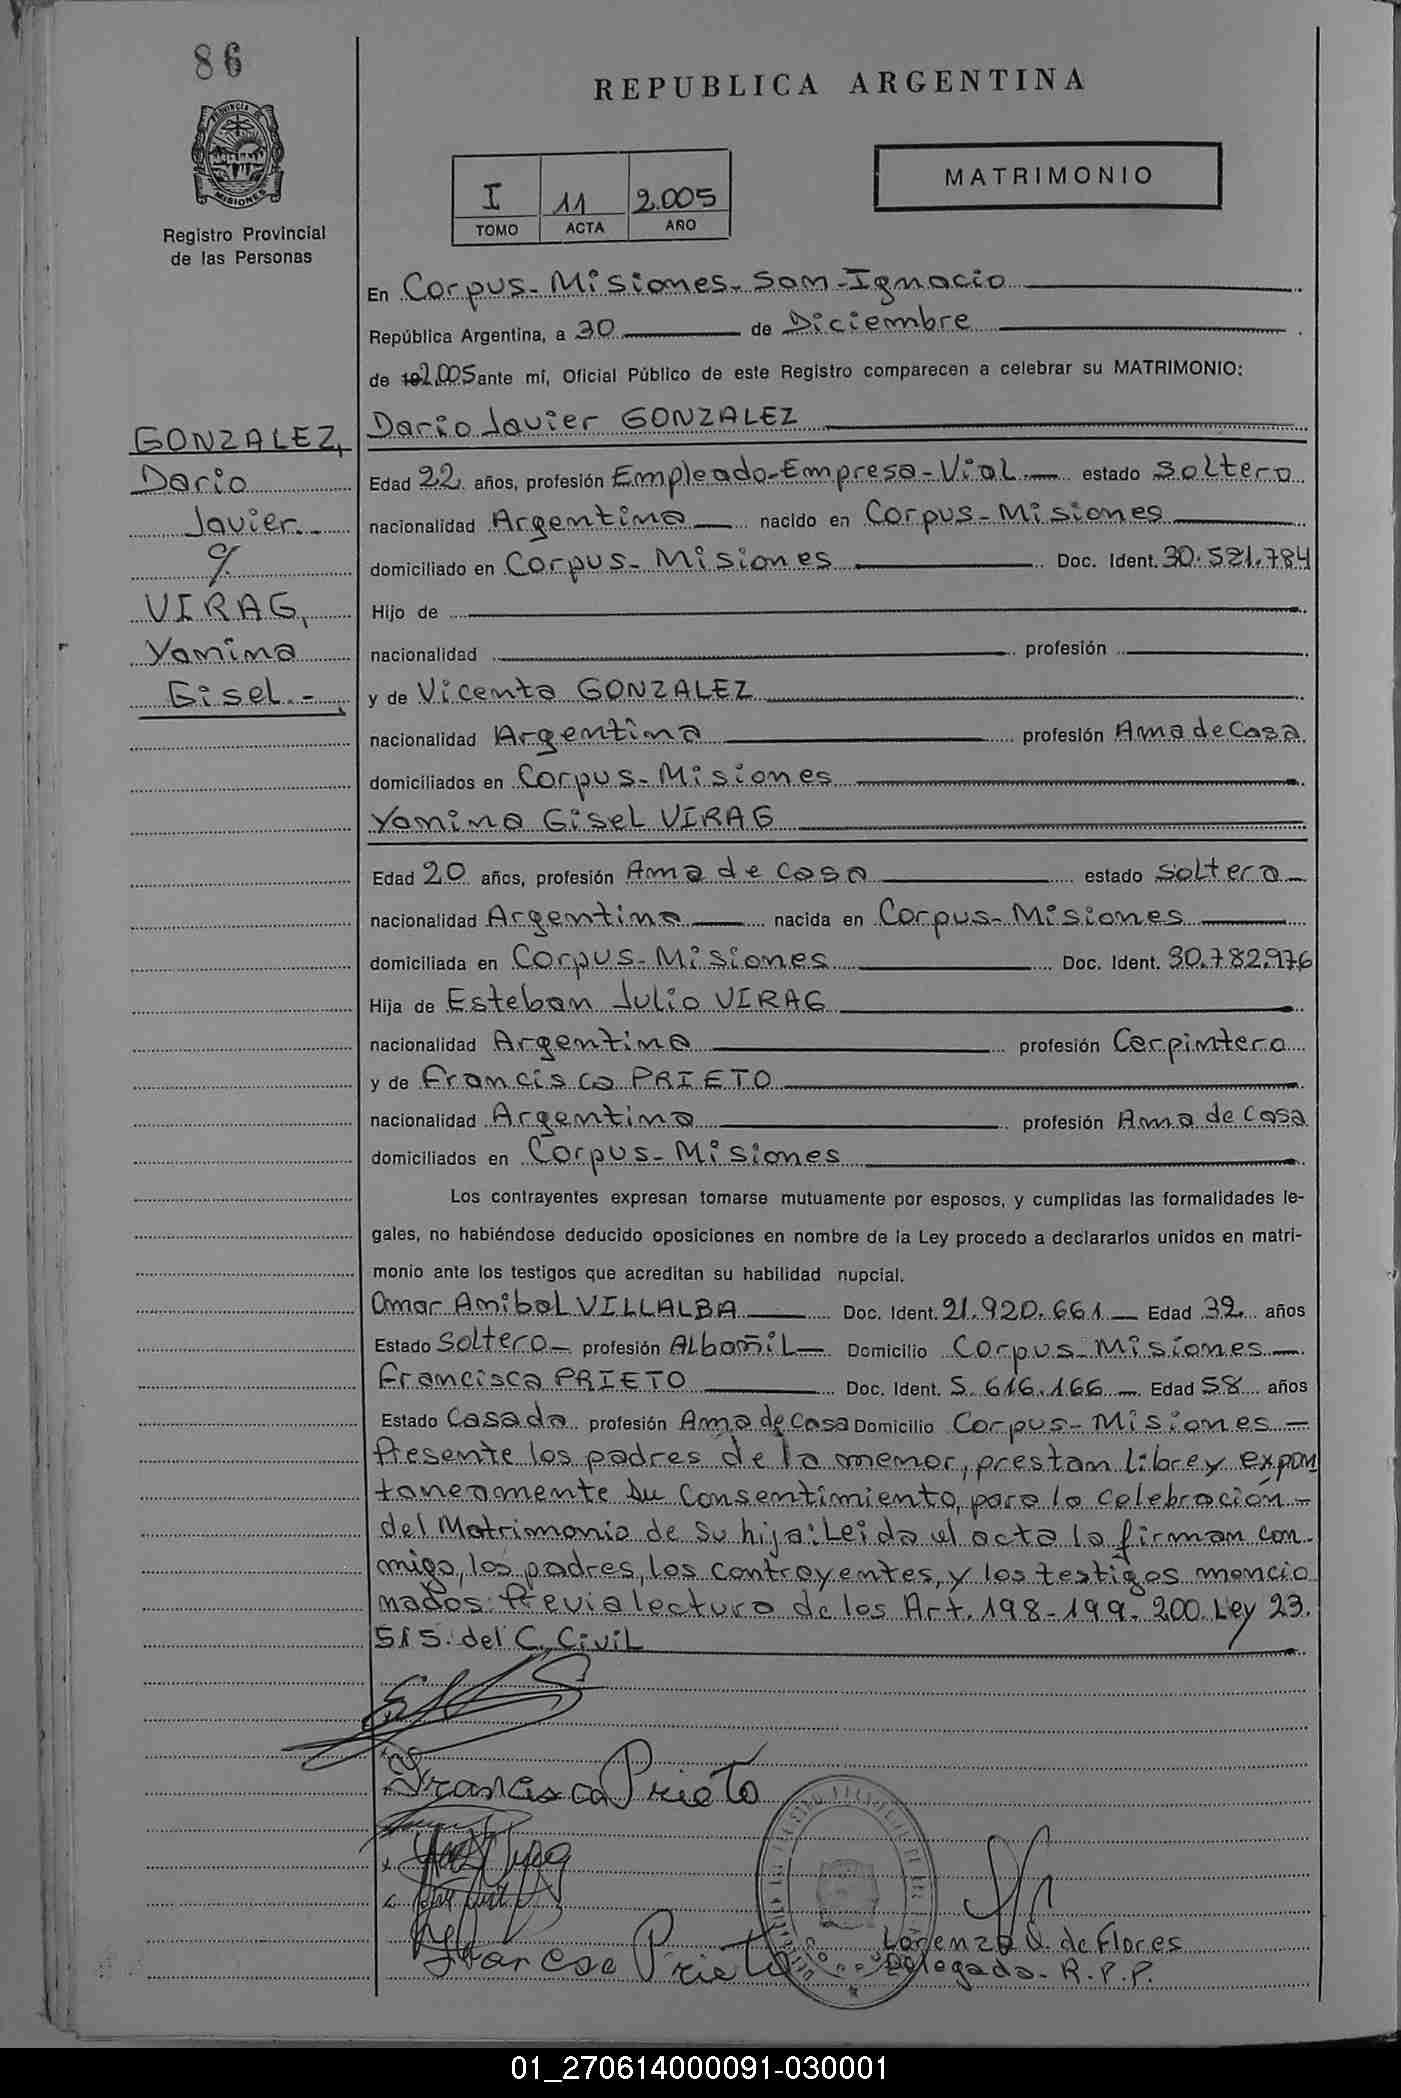 86
REPUBLICA ARGENTINA
PROVINCIA DE
MISIONES
Registro Provincial
de las Personas
I 11 2.005
TOMO ACTA AÑO
MATRIMONIO
En Corpus-Misiones-San-Ignacio
República Argentina, a 30 de Diciembre
de 2.005 ante mí, Oficial Público de este Registro comparecen a celebrar su MATRIMONIO:
GONZALEZ,
Dario
Javier.-
VIRAG,
Yanina
Gisel.-
Dario Javier GONZALEZ
Edad 22 años, profesión Empleado-Empresa-Vial estado Soltero
nacionalidad Argentina nacido en Corpus-Misiones
domiciliado en Corpus-Misiones Doc. Ident. 30.521.784
Hijo de
nacionalidad profesión
y de Vicenta GONZALEZ
nacionalidad Argentina profesión Ama de Casa
domiciliados en Corpus-Misiones
Yanina Gisel VIRAG
Edad 20 años, profesión Ama de casa estado Soltera
nacionalidad Argentina nacida en Corpus-Misiones
domiciliada en Corpus-Misiones Doc. Ident. 30.782.976
Hija de Esteban Julio VIRAG
nacionalidad Argentina profesión Carpintero
y de Francisca PRIETO
nacionalidad Argentina profesión Ama de casa
domiciliados en Corpus-Misiones
Los contrayentes expresan tomarse mutuamente por esposos, y cumplidas las formalidades le-
gales, no habiéndose deducido oposiciones en nombre de la Ley procedo a declararlos unidos en matri-
monio ante los testigos que acreditan su habilidad nupcial.
Omar Anibal VILLALBA Doc. Ident. 21.920.661 Edad 32 años
Estado Soltero profesión Albañil Domicilio Corpus-Misiones
Francisca PRIETO Doc. Ident. 5.616.166 Edad 58 años
Estado Casada profesión Ama de Casa Domicilio Corpus-Misiones
Presente los padres de la menor, prestan libre y expon
taneamente su consentimiento, para la celebración
del Matrimonio de su hija: Leida el acta la firman con-
migo, los padres, los contrayentes, y los testigos mencio
nados. Previa lectura de los Art. 198-199-200. Ley 23.
515. del C. Civil
Francisca Prieto
Francisca Prieto
Lorenza Q. de Flores
Delegada - R.P.P.
01_270614000091-030001